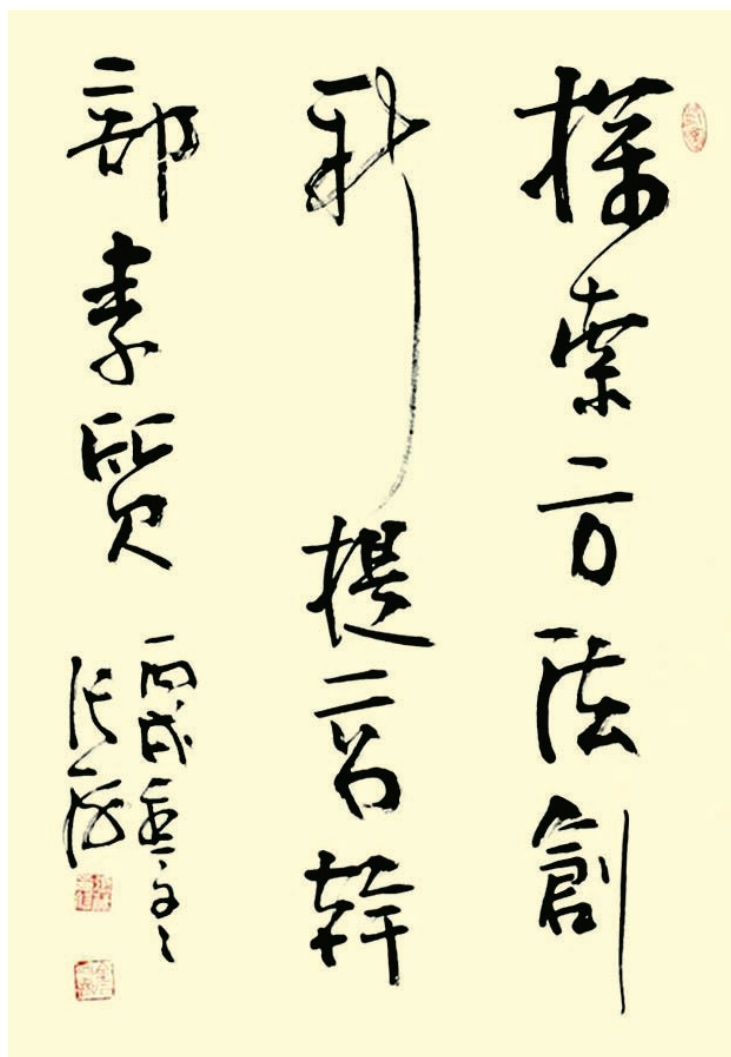 探索方法創
新提高幹
部素質
丙戌
張